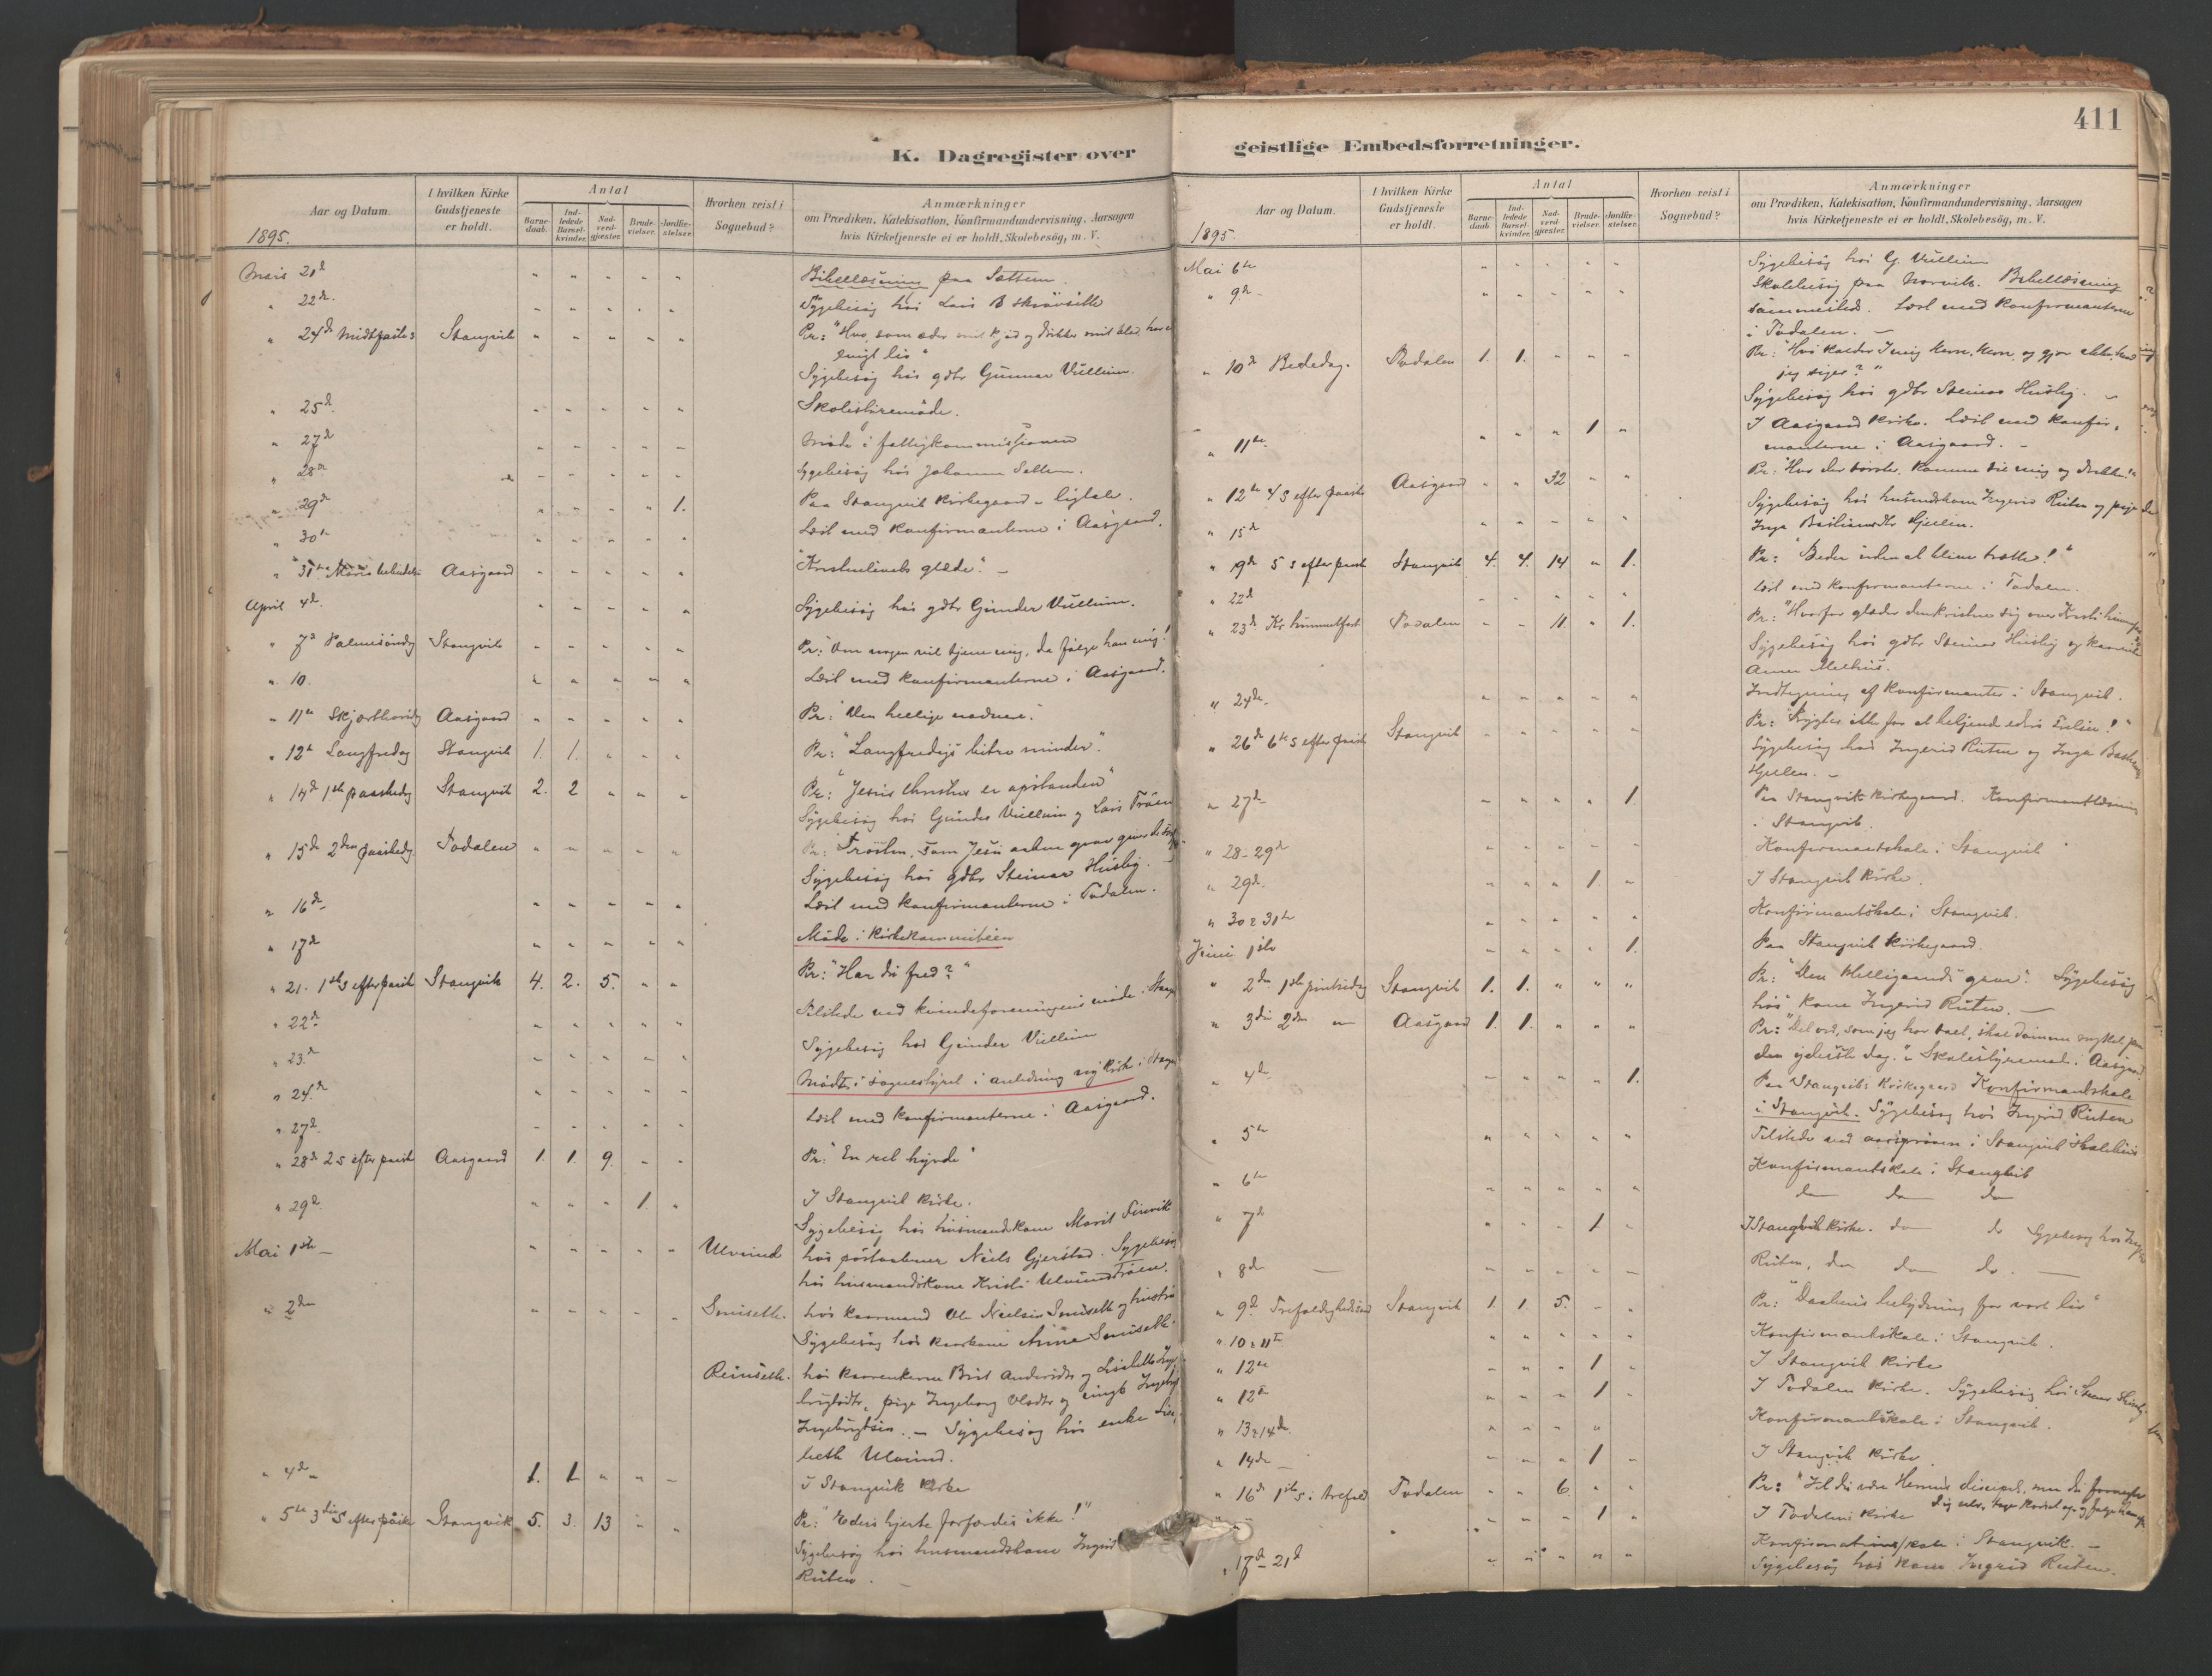 K. Dagregister over
Aar og Datum.
I hvilken Kirke Gudstjeneste er holdt.
Antal
Barnedaab.
Indledede Barselkvinder.
Nadverdgjæster.
Brudevielser.
Jordfæstelser.
Hvorhen reist i Sognebud?
Anmærkninger
om Prædiken, Katekisation, Konfirmandundervisning, Aarsagen
hvis Kirketjeneste ei er holdt, Skolebesög, m. V.
1895.
Mars 21d " " " " " Bibellæsning paa Sættem.
" 22de " " " " " Sygebesøg hos Lars B
" 24de Midtfaste s Stangvik " " " " " Pr: "Hvo, som æder mit kjød og drikker mit blod, har et
evigt liv"
Sygebesøg hos gdbr Gunnar Vullum.
" 25d. " " " " " Skolestyremøde.
" 27d " " " " " Møde i fattigkommissionen
" 28de " " " " " Sygebesøg hos Johanna Settem.
" 29d " " " " 1. Paa Stangvik Kirkegaard - ligtale.
" 30te " " " " " Læst med konfirmanterne i Aasgaard.
" 31te Mariæ bebudelse Aasgaard " " " " " "Kristenlivets glæde." -
April 4d. " " " " " Sygebesøg hos gdbr Gunder Vullum.
" 7d Palmesøndag Stangvik " " " " " Pr: "Om nogen vil tjene mig, da følge han mig!
" 10. " " " " " Læst med konfirmanterne i Aasgaard.
" 11te Skjærthorsdag Aasgaard " " " " " Pr: "Den hellige nadvere."
" 12te Langfredag Stangvik 1. 1. " " " Pr: "Langfredags bitre minder".
" 14d 1ste paaskedag Stangvik 2. 2 " " " Pr: "Jesus Christus er opstanden"
Sygebesøg hos Gunder Vullum og Lars Trøen
" 15de 2den paaskedg. Todalen " " " " " Pr: Trøsten, som Jesu aabne grav giver
Sygebesøg hos gdbr Steinar Husby. -
" 16de " " " " " Læst med konfirmanterne i Todalen.
" 17d " " " " " Møde i kirkekommiteen
" 21. 1ste s efter paaske Stangvik 4. 2. 5. " " Pr: "Har du fred?"
" 22de " " " " " Tilstede ved kvindeforeningens møde i
" 23.d " " " " " Sygebesøg hos Gunder Vullum
" 24.d " " " " " Møde i sognestyret i anledning ny kirke i
" 27d. " " " " " Læst med konfirmanterne i Aasgaard.
" 28de 2 s efter paaske Aasgaard 1. 1. 9. " " Pr: "En ret hyrde"
" 29d " " " 1. " I Stangvik kirke.
Sygebesøg hos husmandskone Marit
Mai 1ste " " " " " Ulvund hos Niels Gjerstad. Sygebesøg
hos husmandskone Kristi Ulvundtrøen.
" 2den " " " " " Smiseth. hos kaarmand Ole Nielsen Smiseth og hustru
Sygebesøg hos kaarkone Anne Smiseth.
Reinseth. hos kaarenkerne Brit Andersdtr og Lisbeth
pige Ingeborg Olsdtr og
Sygebesøg hos enke
beth Ulvund.
" 4de 1. 1. " " " I Stangvik kirke
" 5te 3die s efter paaske Stangvik 5. 3. 13 " " Pr: "Eders hjerte forfærdes ikke!"
Sygebesøg hos husmandskone Ingrid
Ruten.
geistlige Embedsforretninger.
411
Aar og Datum.
I hvilken Kirke Gudstjeneste er holdt.
Antal
Barnedaab.
Indledede Barselkvinder.
Nadverdgjæster.
Brudevielser.
Jordfæstelser.
Hvorhen reist i Sognebud?
Anmærkninger
om Prædiken, Katekisation, Konfirmandundervisning, Aarsagen
hvis Kirketjeneste ei er holdt, Skolebesög, m. V.
1895.
Mai 6te " " " " " Sygebesøg hos G. Vullum
" 9de " " " " " Skolebesøg paa Norvik. Bibellæsning
sammesteds. Læst med konfirmanterne
i Todalen. -
" 10de Bededag. Todalen 1. 1. " " " Pr: "Hvi kalder I mig Herre, Herre, og gjør ikke, hvad
jeg siger?"
Sygebesøg hos gdbr Steinar Husby. -
" 11te " " " 1 " I Aasgaard kirke. Læst med konfir-
manterne i Aasgaard. -
" 12te 4 s efter paaske Aasgaard " " 32 " " Pr: "Hvo der tørster, komme til mig og drikke!"
" 15d " " " " " Sygebesøg hos husmandskone Ingrid Ruten og pige
Inga
" 19de 5 s efter paaske Stangvik 4. 4. 14 " 1. Pr: "Beder uden at blive trætte!"
" 22d " " " " " Læst med konfirmanterne i Todalen.
" 23de Kr himmelfart Todalen " " 11. " 1. Pr: "Hvorfor glæder den kristne sig over Kristi
Sygebesøg hos gdbr Steinar Husby og
Anne Melhus.
" 24de " " " " " Indtegning af konfirmanter i Stangvik.
" 26de 6te s efter paaske Stangvik " " " " " Pr: "Frygter ikke for at bekjende
Sygebesøg hos Ingrid Ruten og Inga
" 27de " " " " 1. Paa Stangvik kirkegaard. Konfirmantlæsning
i Stangvik.
" 28-29de " " " " " Konfirmantskole i Stangvik
" 29de " " " 1. " I Stangvik kirke.
" 30 & 31te " " " " " Konfirmantskole i Stangvik.
Juni 1ste " " " " 1. Paa Stangvik kirkegaard.
" 2den 1ste pintsedag Stangvik 1. 1. " " " Pr: "Den Helligaands gave". Sygebesøg
hos kone Ingrid Ruten. -
" 3die 2den " Aasgaard 1. 1. " " " Pr: "Det ord, som jeg har talt, skal dømme
den yderste dag." - Skolestyremøde i Aasgaard
" 4de " " " " 1. Paa Stangviks kirkegaard Konfirmantskole
i Stangvik. Sygebesøg hos Ingrid Ruten
" 5te " " " " " Tilstede ved i Stangvik Skolehus
Konfirmantskole i Stangvik
" 6te " " " " " do do do
" 7de " " " 1 " I Stangvik kirke. do do Sygebesøg hos
" 8de " " " " " Ruten, do do do. -
" 9d Trefoldighedssønd Stangvik 1. 1. 5. " " Pr: "Daabens betydning for vort liv"
" 10 & 11te " " " " " Konfirmantskole i Stangvik.
" 12te " " " 1 " I Stangvik kirke
" 12te " " " 1 " I Todalen kirke. Sygebesøg hos
" 13 & 14de " " " " Konfirmantskole i Stangvik.
" 14de " " " 1 " I Stangvik kirke
" 16de 1ste s. i trefold Todalen " " 6. " " Pr: "Vil du være Herrens discipel, maa du fornegte
dig selv, tage korset op og følge
" " " " 1 " I Todalens kirke
" 17de-21d " " " " " Konfirmationsskole i Stangvik. -
Sygebesøg hos kone Ingrid Ruten.